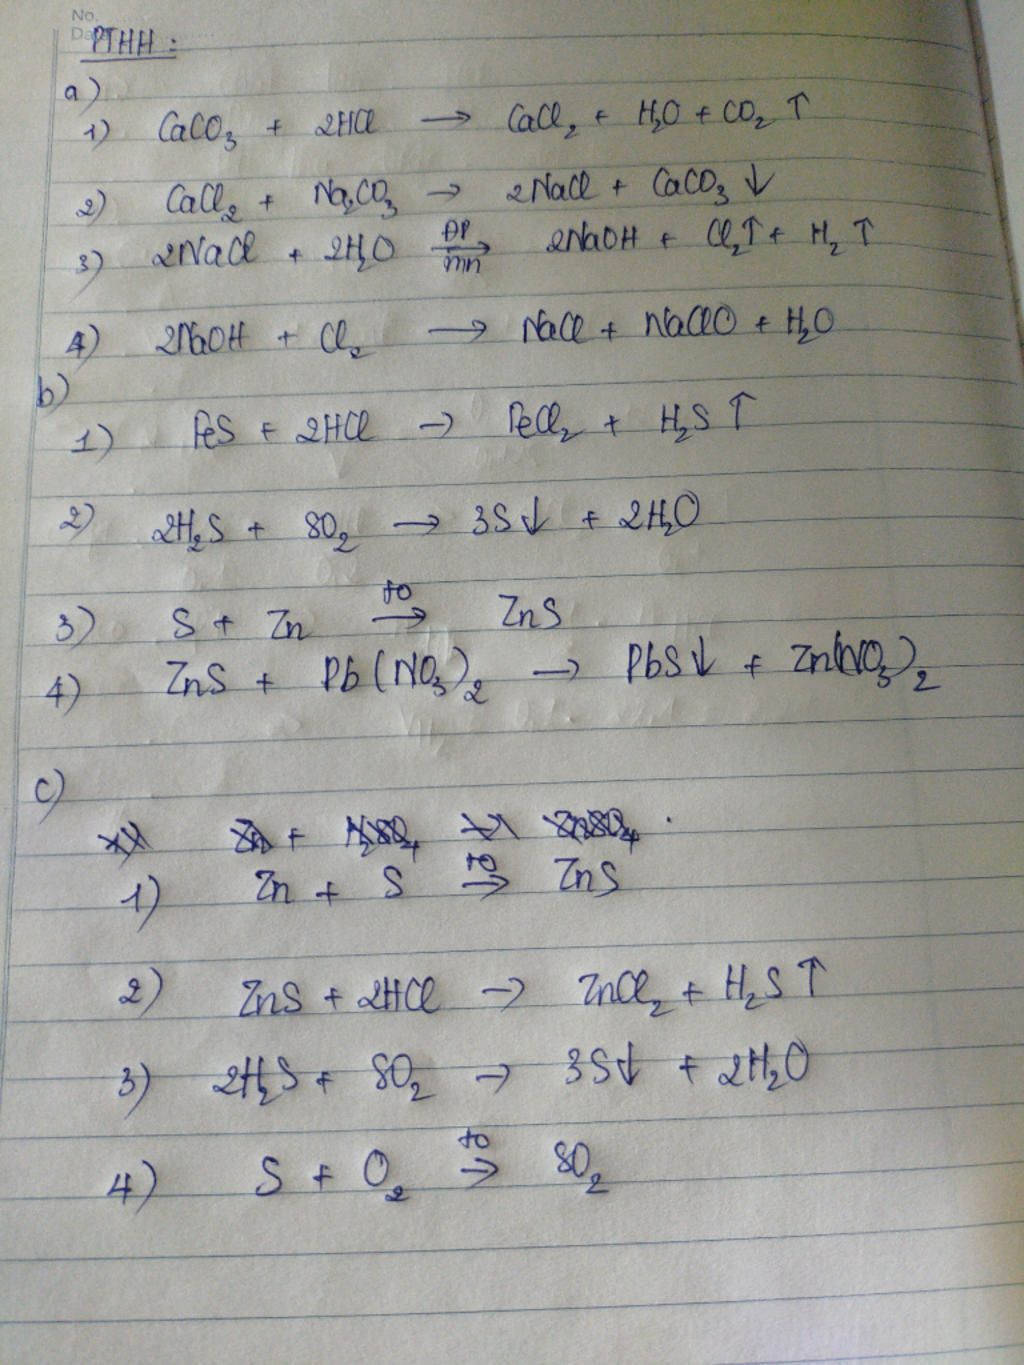 No.
Da
PTHH :
a)
1) CaCO₃ + 2HCl → CaCl₂ + H₂O + CO₂ ↑
2) CaCl₂ + Na₂CO₃ → 2NaCl + CaCO₃ ↓
3) 2NaCl + 2H₂O →(ĐP / mn) 2NaOH + Cl₂↑ + H₂ ↑
4) 2NaOH + Cl₂ → NaCl + NaClO + H₂O
b)
1) FeS + 2HCl → FeCl₂ + H₂S ↑
2) 2H₂S + SO₂ → 3S↓ + 2H₂O
3) S + Zn →(to) ZnS
4) ZnS + Pb(NO₃)₂ → PbS↓ + Zn(NO₃)₂
c)
Zn + H₂SO₄ → ZnSO₄
1) Zn + S →(to) ZnS
2) ZnS + 2HCl → ZnCl₂ + H₂S ↑
3) 2H₂S + SO₂ → 3S↓ + 2H₂O
4) S + O₂ →(to) SO₂